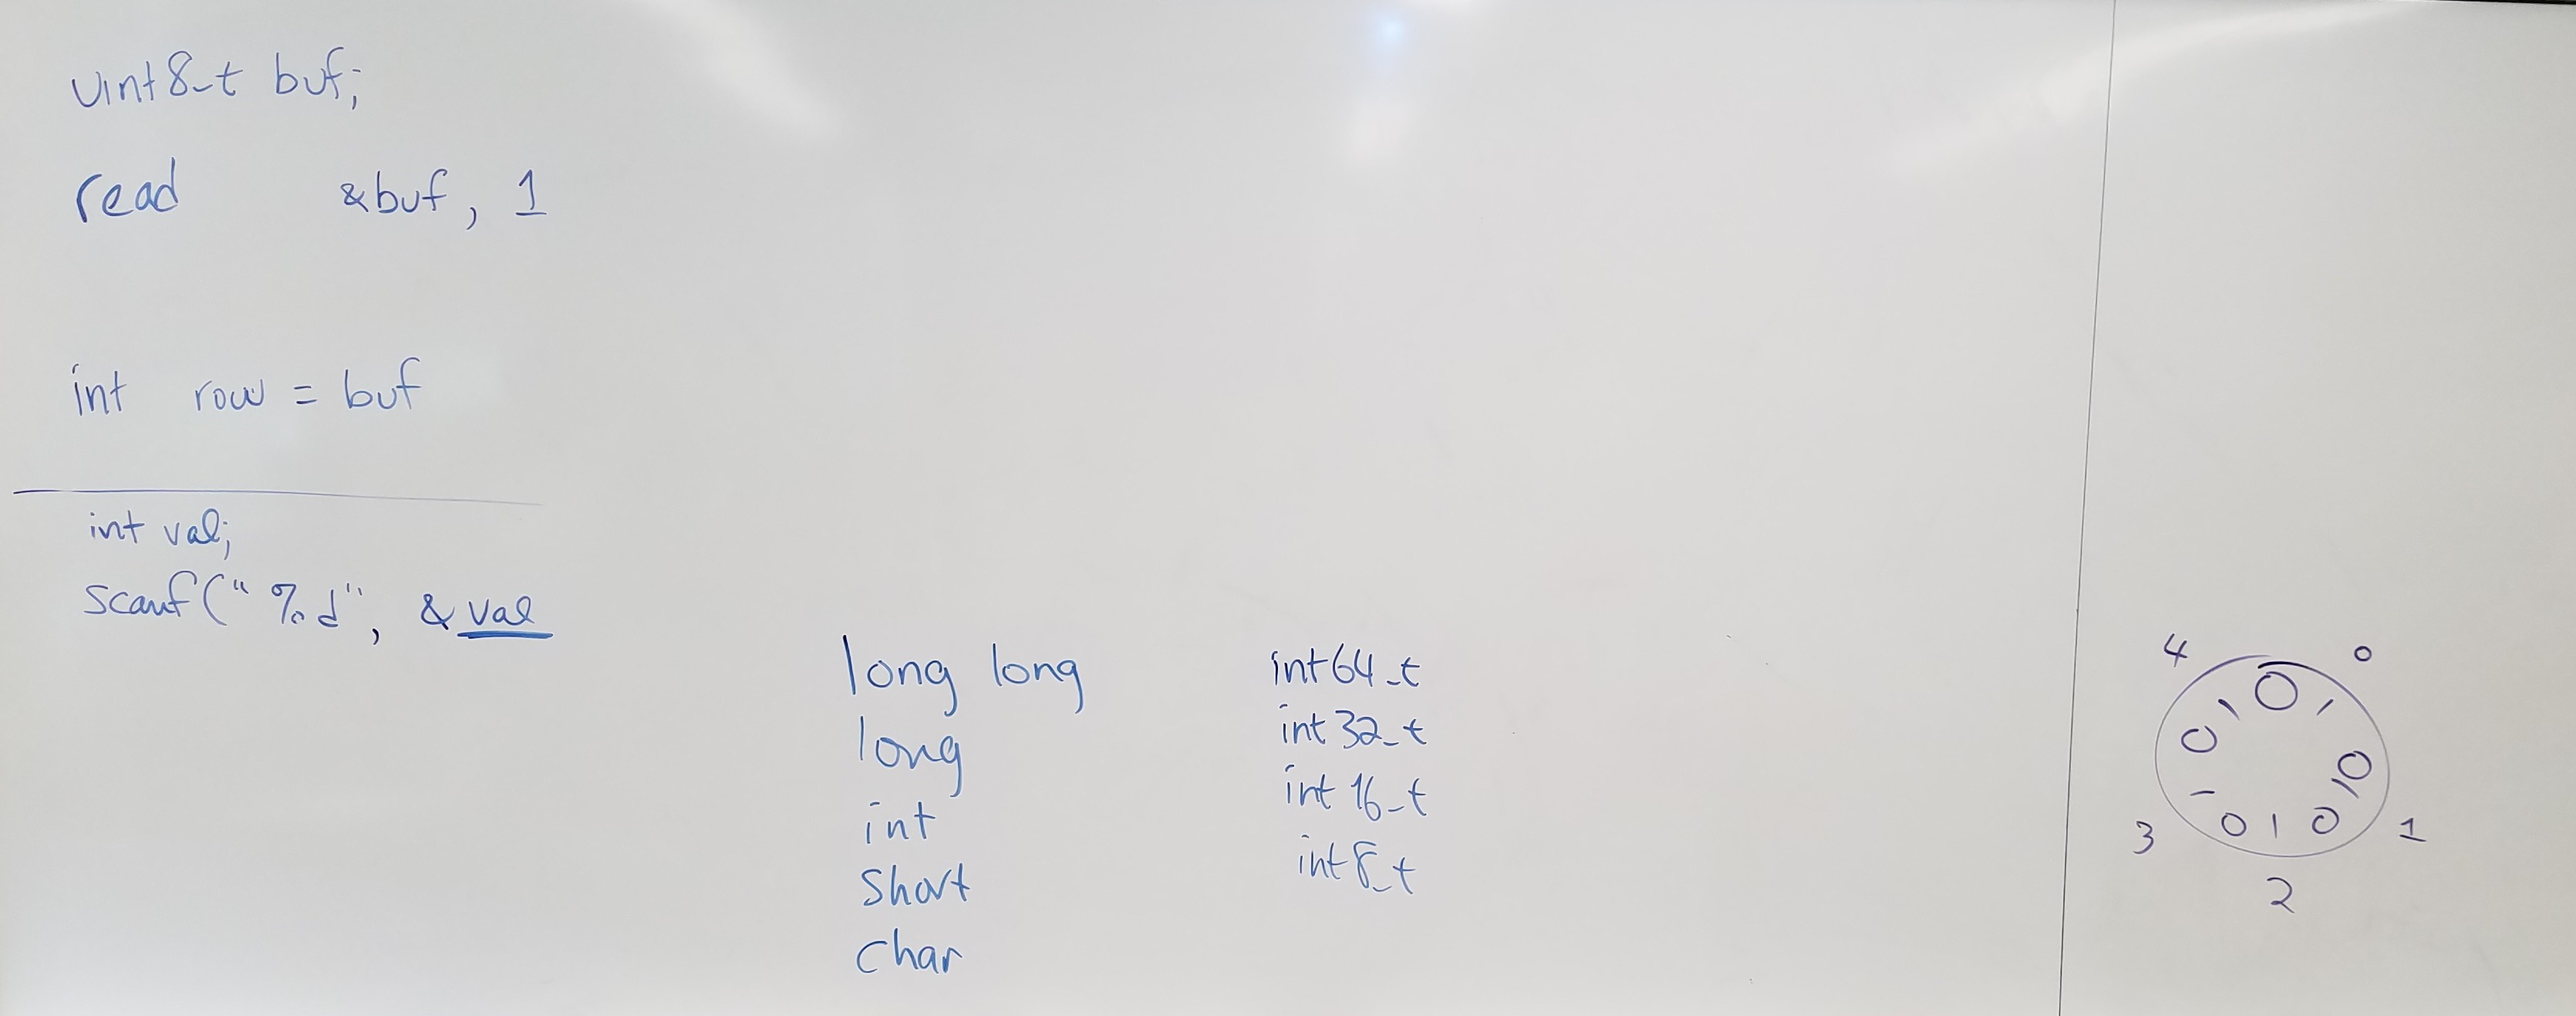 uint8_t buf;
read &buf, 1
int row = buf
int val;
scanf("%d", &val
long long
long
int
short
char
int64_t
int32_t
int16_t
int8_t
4 0
0 1 0 1
0 1 0 1 0 1
3 1
2